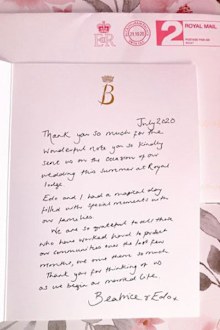 ROYAL MAIL
2
B
July 2020
Thank you so much for the
wonderful note you so kindly
sent us on the occasion of our
wedding this summer at Royal
Lodge
Edo and I had a magical day
filled with special moments with
our families.
We are so grateful to all those
who have worked hard to protect
our communities over the last few
months, we owe them so much.
Thank you for thinking of us
as we begin our married life.
Beatrice & Edo x